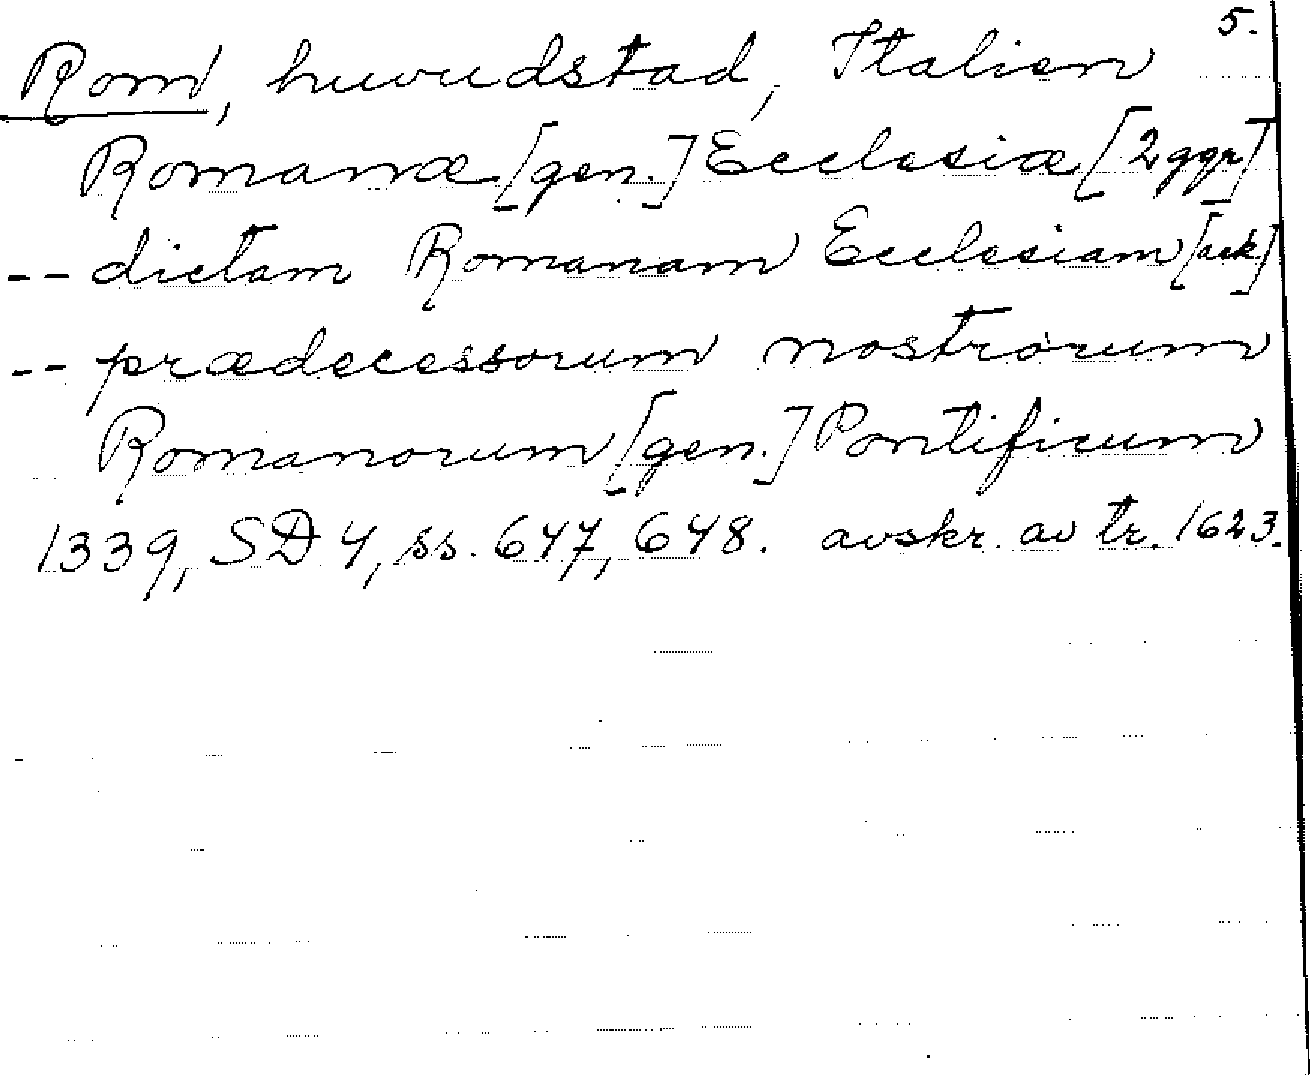 5.
Rom, huvudstad, Italien
Romanæ [gen.] Ecclesiæ [2 ggr]
-- dictam Romanam Ecclesiam [ack]
-- prædecessorum nostrorum
Romanorum [gen.] Pontificum
1339, SD 4, ss. 647, 648. avskr. av tr. 1623.